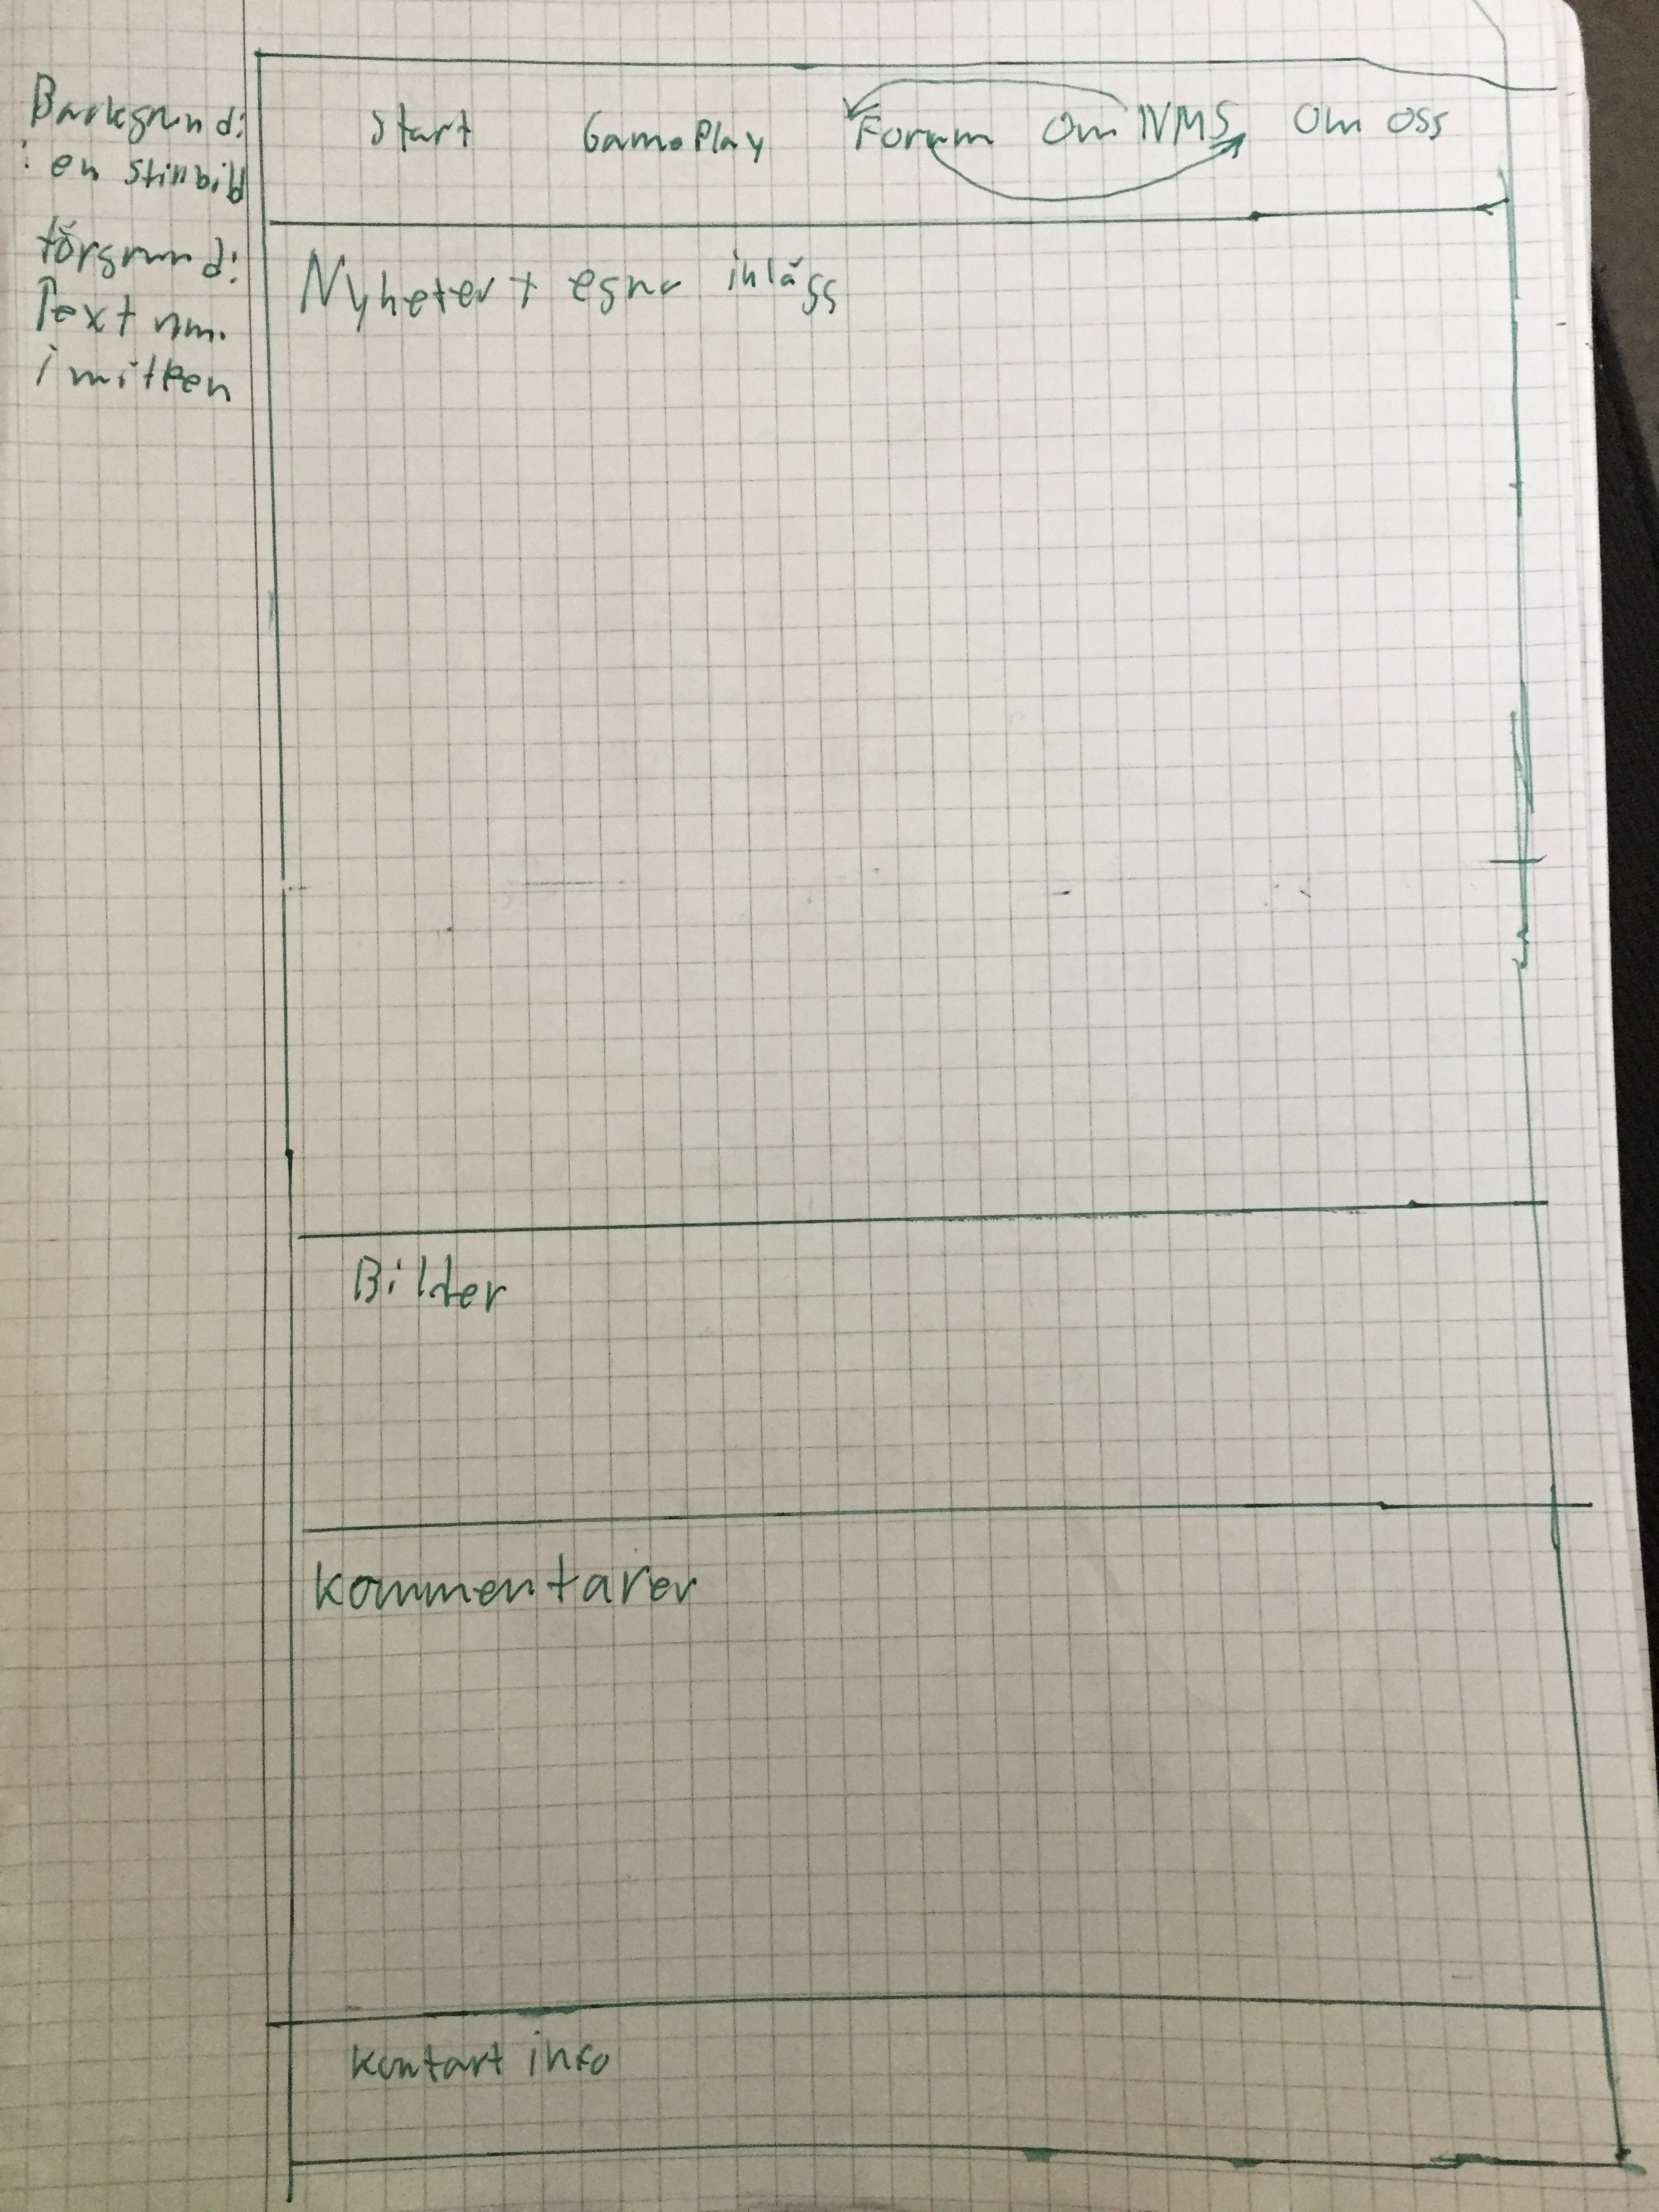 Backgrund:
en stillbild
förgrund:
Text mm.
i mitten
Start GamePlay Forum Om NMS Om oss
Nyheter + egna inlägg
Bilder
Kommentarer
Kontart info